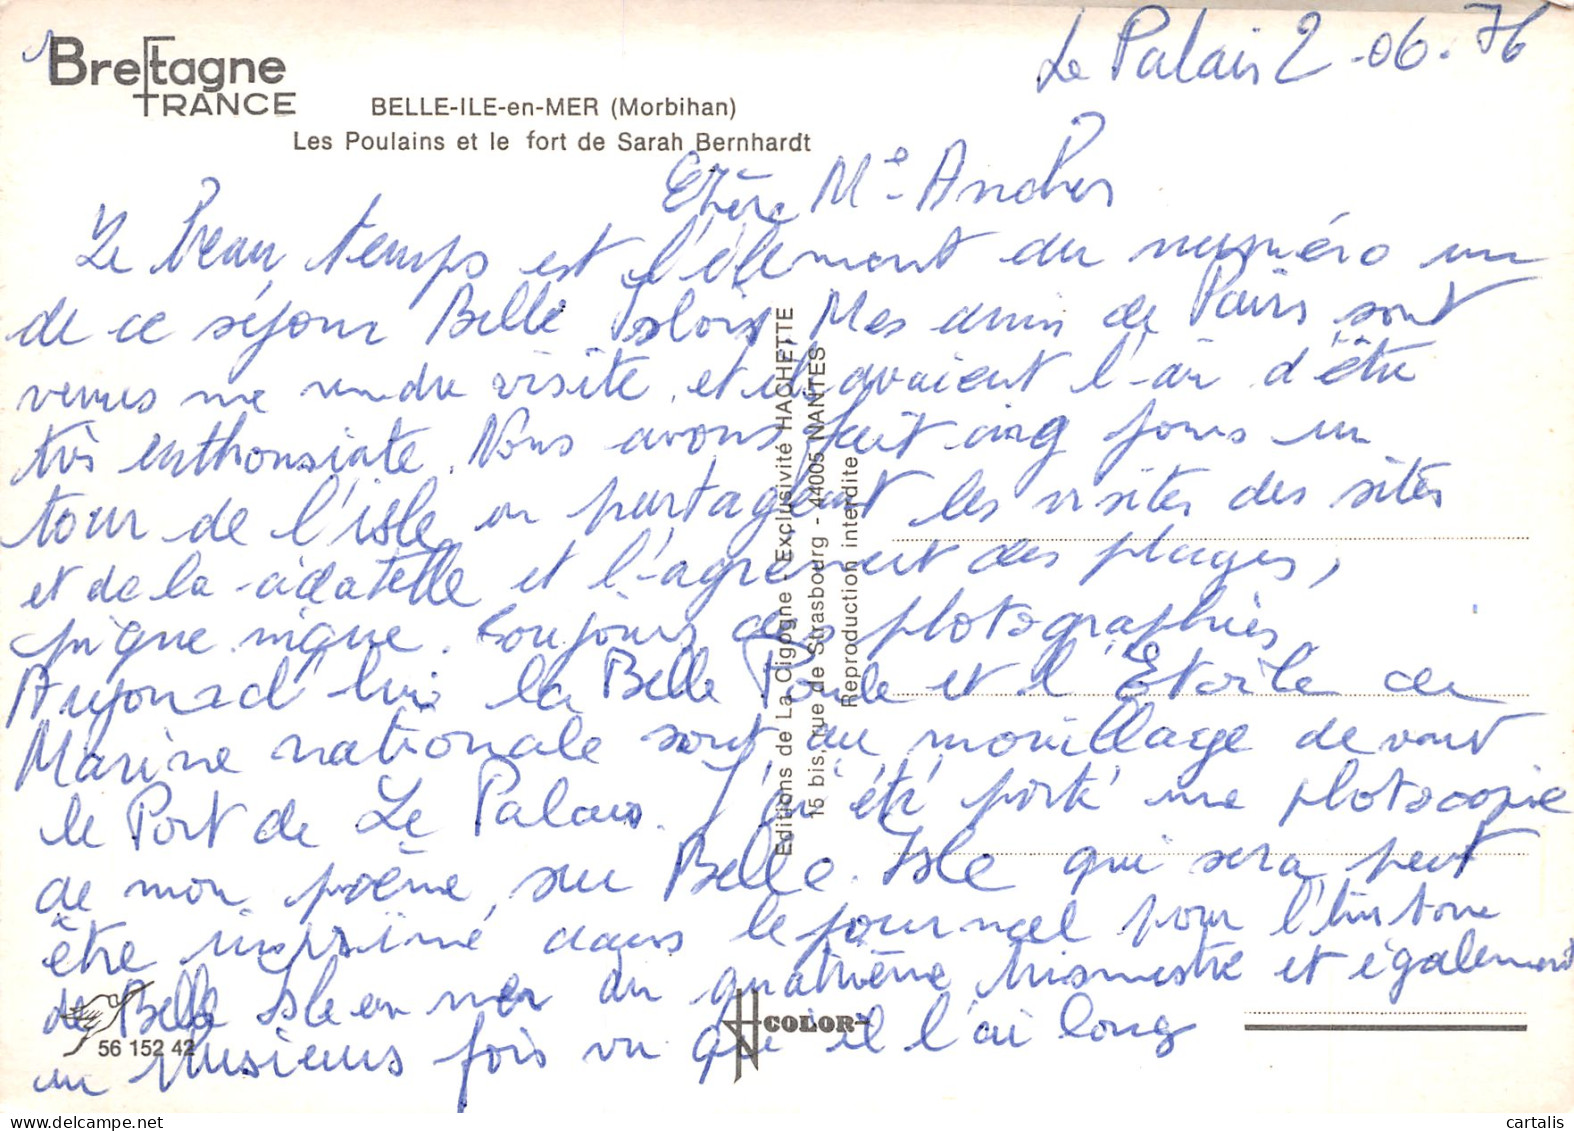 Bretagne
FRANCE
BELLE-ILE-en-MER (Morbihan)
Les Poulains et le fort de Sarah Bernhardt
Le Palais 2-06-76
Chère Me Andrer
Le Beau temps est l'élément du numéro un
de ce séjour Belle Islois, Mes amis de Paris sont
venus me rendre visite, et ils avaient l'air d'être
très enthousiate. Nous avons fait cinq jours un
tour de l'isle en partageant les visites des sites
et de la citatelle et l'agrément des plages,
pique nique. Toujours des photographies
Aujourd'hui la Belle Poule et l'Etoile de
Marine nationale sont au mouillage devant
le Port de Le Palais. J'ai été porté une photocopie
de mon poème sur Belle-Isle qui sera peut
être imprimé dans le journal pour l'histoire
de Belle Isle en mer du quatrième trismestre et également
en plusieurs fois vu qu'il l'ai long
Editions de La Cigogne - Exclusivité HACHETTE
15 bis, rue de Strasbourg - 44005 NANTES
Reproduction interdite
COLOR
56 152 42
cartalis